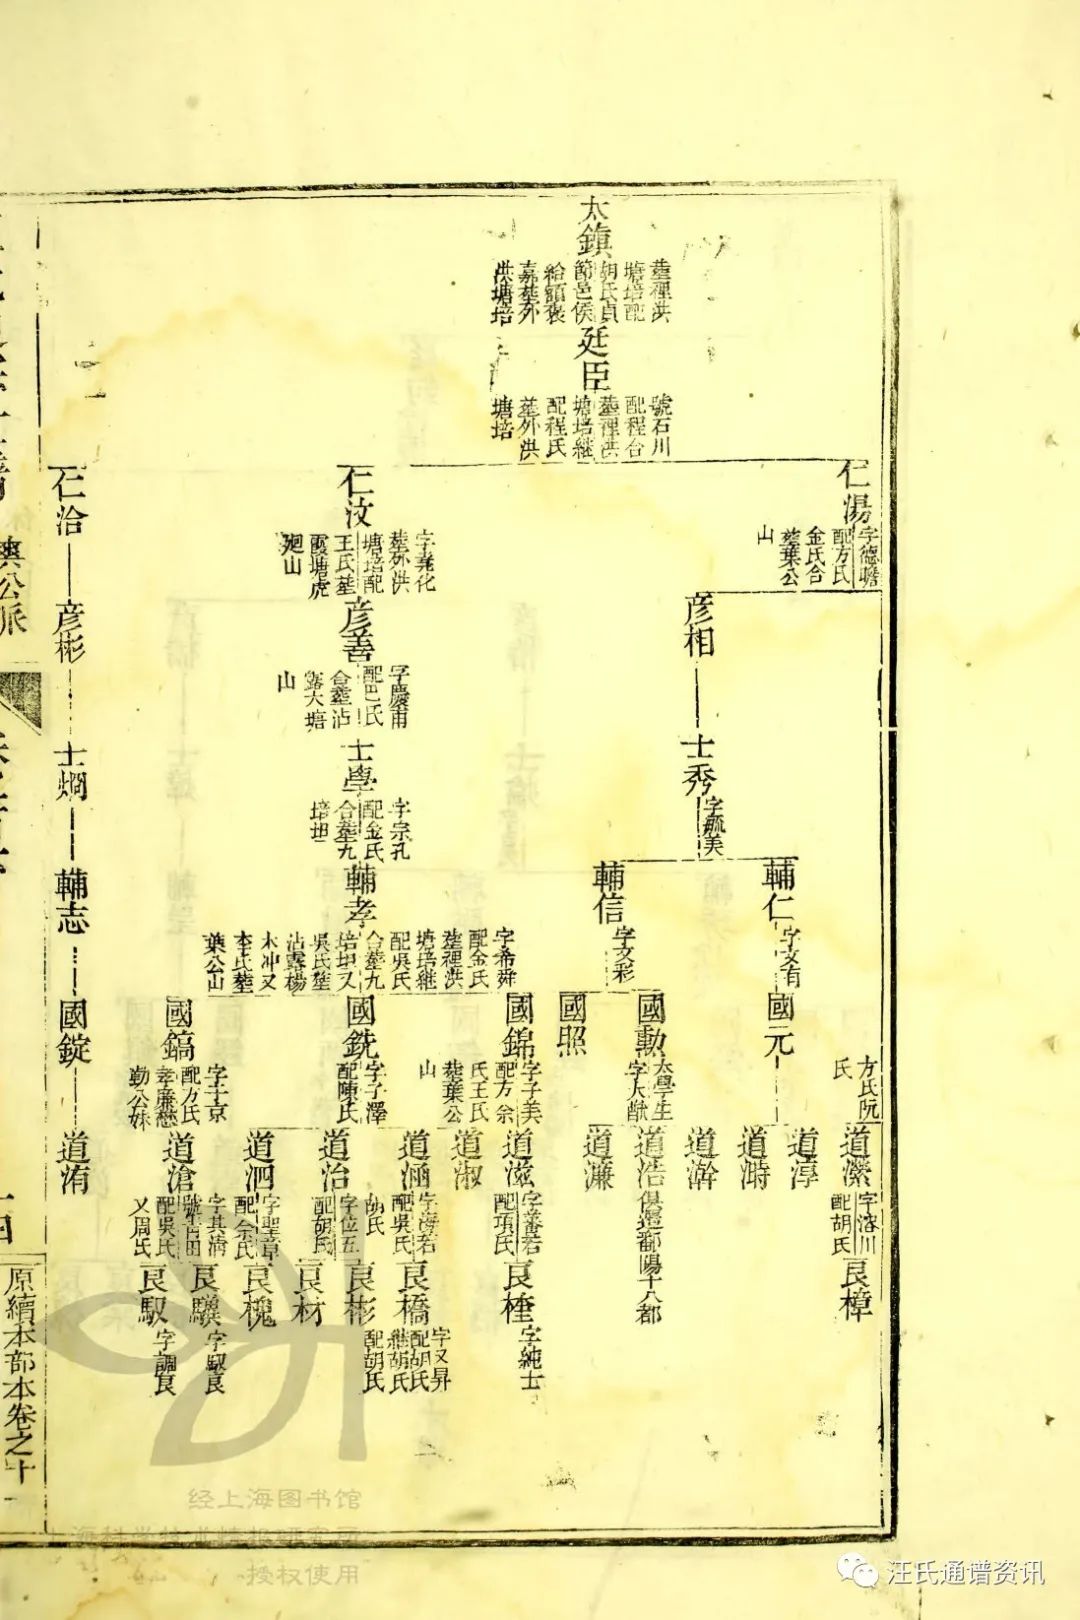 太鎮
葬裡洪
塘培配
胡氏貞
節邑侯
給額褒
嘉葬外
洪塘培
廷臣
號石川
配程合
葬裡洪
塘培継
配程氏
葬外洪
塘培
仁湯
字德瞻
配方氏
金氏合
葬葉公
山
仁汶
字堯化
葬外洪
塘培配
王氏葬
霞塘虎
廻山
仁洽
彦相
彦善
字慶甫
配巴氏
合葬沾
露大塘
山
彦彬
士秀
字毓美
士學
字宗孔
配金氏
合葬九
培坦
士爛
輔仁
字文有
輔信
字文彩
輔孝
字希舜
配金氏
葬裡洪
塘培継
配吳氏
合葬九
培坦又
吳氏葬
沾露楊
木冲又
李氏葬
葉公山
輔志
方氏阮
氏
國元
國勲
太學生
字大猷
國照
國錦
字子美
配方 余
氏王氏
葬葉公
山
國銑
字子澤
配陳氏
國鎬
字于京
配方氏
孝廉懋
勤公妹
國錠
道潆
字溶川
配胡氏
道淳
道溡
道澣
道浩
俱遷鄱陽十八都
道濂
道滋
字蕃若
配項氏
道淑
道涵
字海若
配吳氏
胡氏
道治
字位五
配胡氏
道泗
字聖章
配余氏
道滄
字其清
號生白田
配吳氏
又周氏
道洧
良樟
良㮚
字純士
良橋
字又昇
配胡氏
継胡氏
配胡氏
良彬
良材
良槐
良驥
字馭良
良馭
字調良
爽公派
原續本部本卷之十
经上海图书馆
上海科学技术情报研究所
授权使用
汪氏通谱资讯